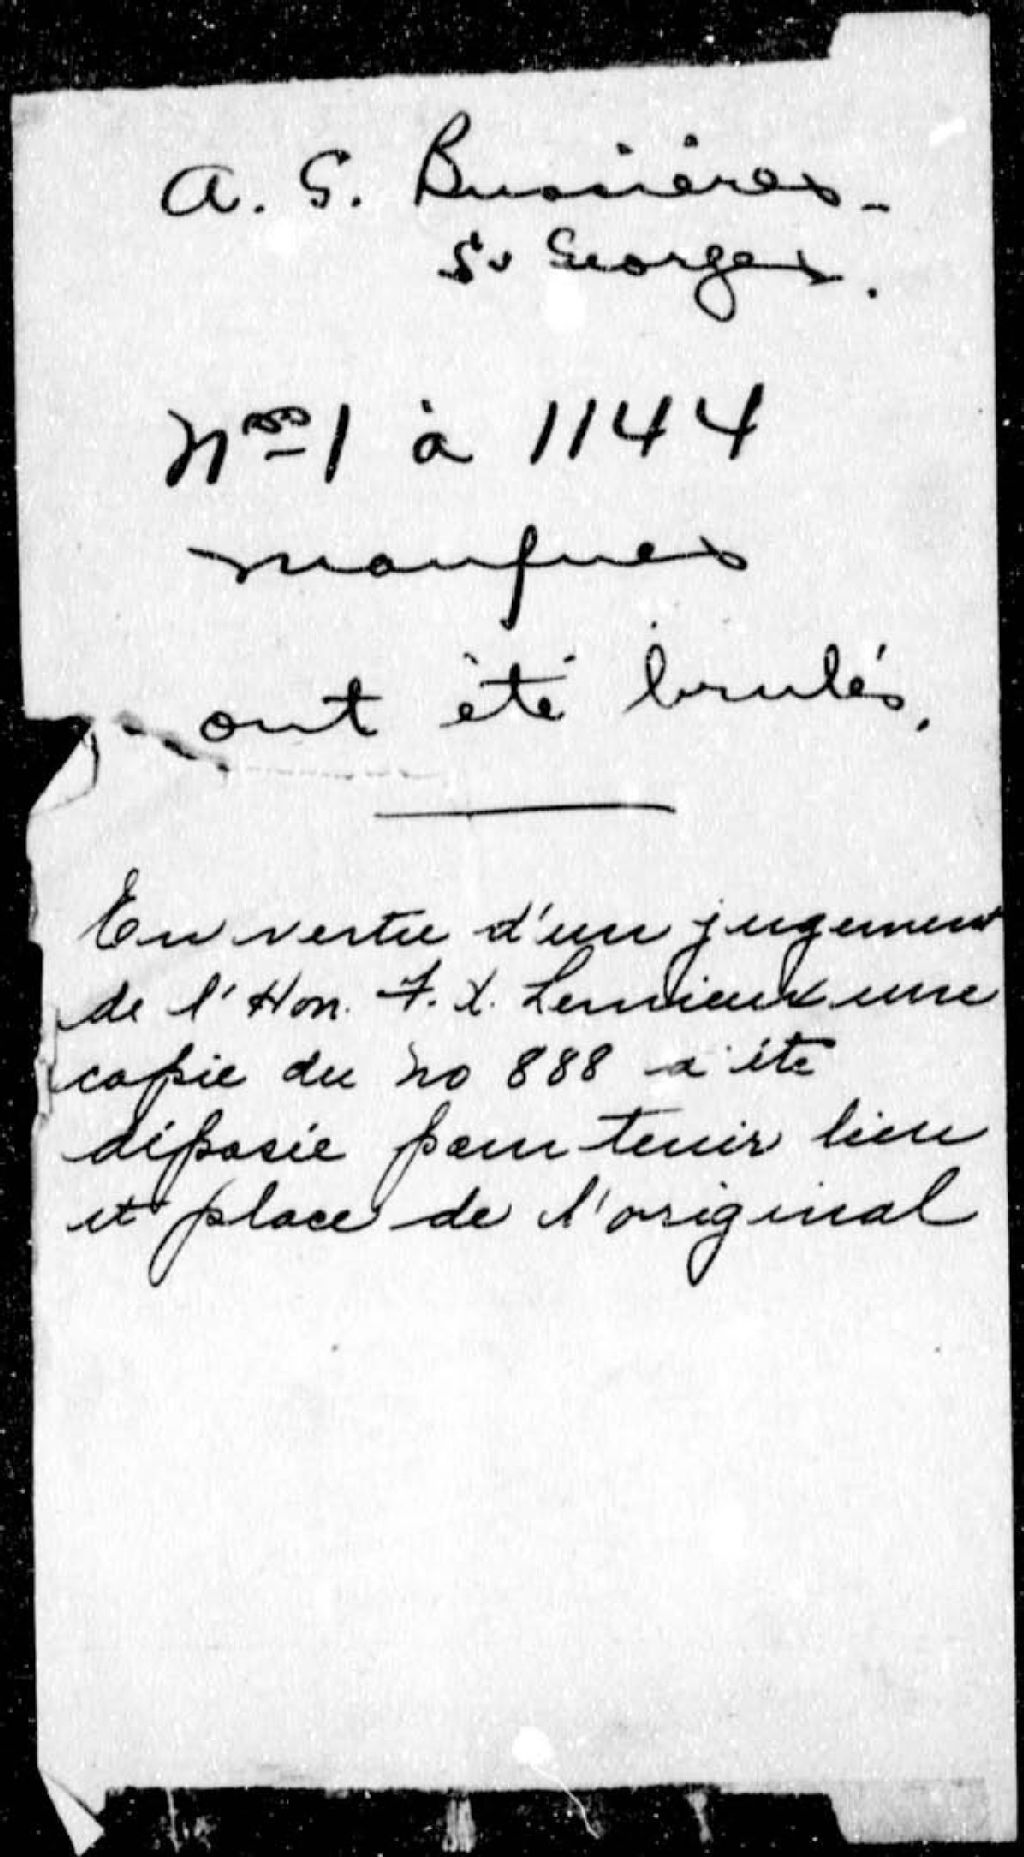 A. G. Bussières -
St Georges.
Nos 1 à 1144
manques
ont été brulés.
En vertu d'un jugement
de l'Hon. F. X. Lemieux une
copie du no 888 a été
déposée pour tenir lieu
et place de l'original